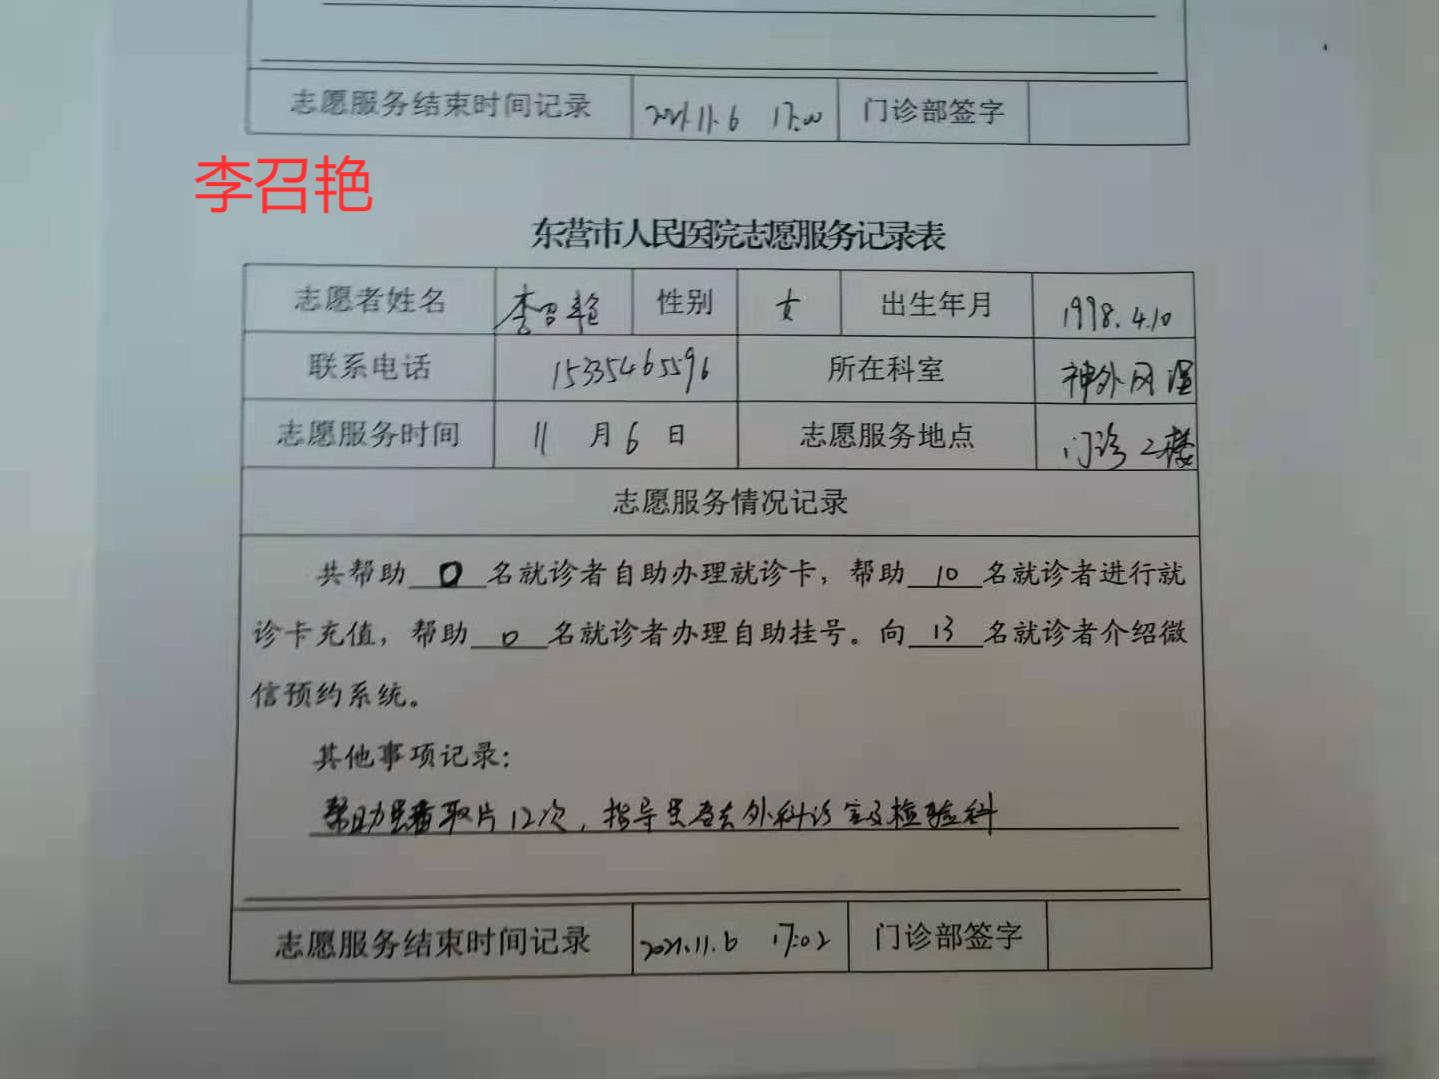 志愿服务结束时间记录 2021.11.6 17:00 门诊部签字
李召艳
东营市人民医院志愿服务记录表
志愿者姓名 李召艳 性别 女 出生年月 1998.4.10
联系电话 15335465596 所在科室 神外网管
志愿服务时间 11 月 6 日 志愿服务地点 门诊二楼
志愿服务情况记录
共帮助 0 名就诊者自助办理就诊卡，帮助 10 名就诊者进行就
诊卡充值，帮助 0 名就诊者办理自助挂号。向 13 名就诊者介绍微
信预约系统。
其他事项记录：
帮助患者取片12次，指导患者去外科诊室及检验科
志愿服务结束时间记录 2021.11.6 17:02 门诊部签字